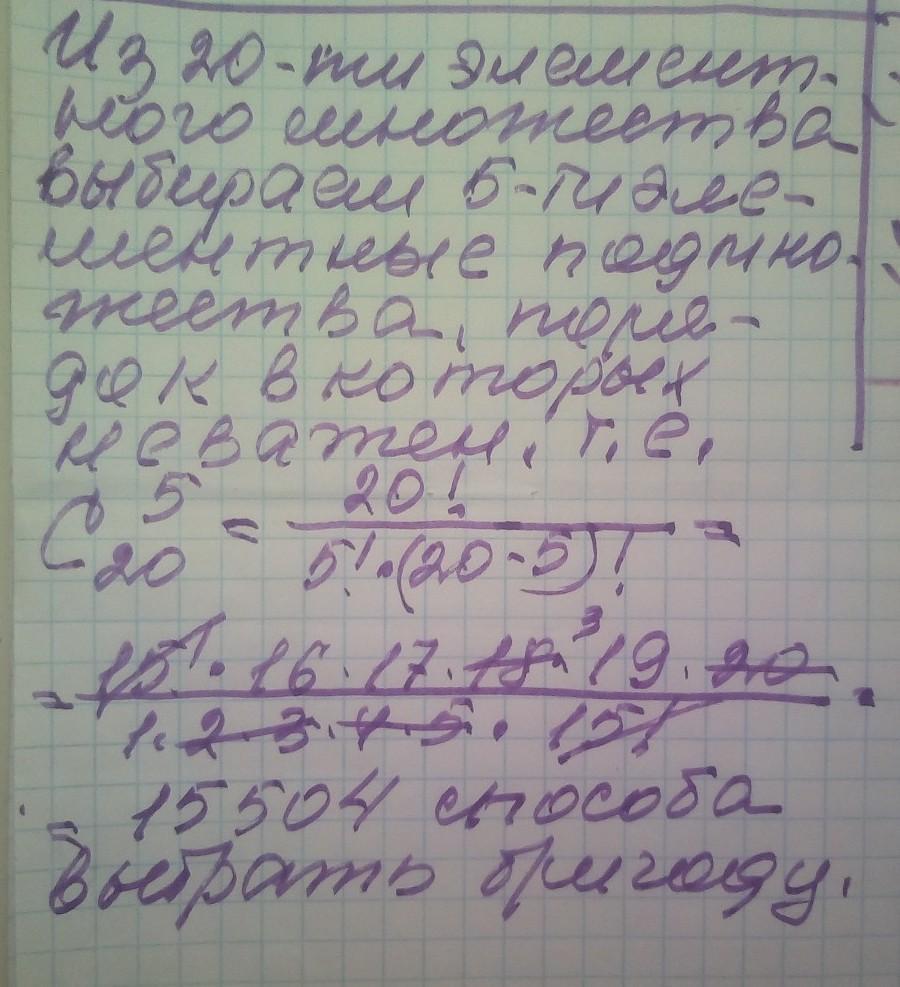 Из 20-ти элемент-
ного множества
выбираем 5-ти эле-
ментные подмно-
жества, поря-
док в которых
не важен, т.е.
C₂₀⁵ = 20! / (5!·(20-5)!) =
= 15!·16·17·18·³19·20 / (1·2·3·4·5·15!) =
= 15504 способа
выбрать бригаду.